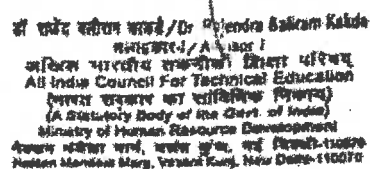 डॉ राजेंद्र बलीराम काकडे/Dr Rajendra Baliram Kakde
सलाहकार-I/Advisor I
अखिल भारतीय तकनीकी शिक्षा परिषद्
All India Council For Technical Education
(भारत सरकार का सांविधिक निकाय)
(A Statutory Body of the Govt. of India)
Ministry of Human Resource Development
नेल्सन मंडेला मार्ग, वसंत कुंज, नई दिल्ली-110070
Nelson Mandela Marg, Vasant Kunj, New Delhi-110070